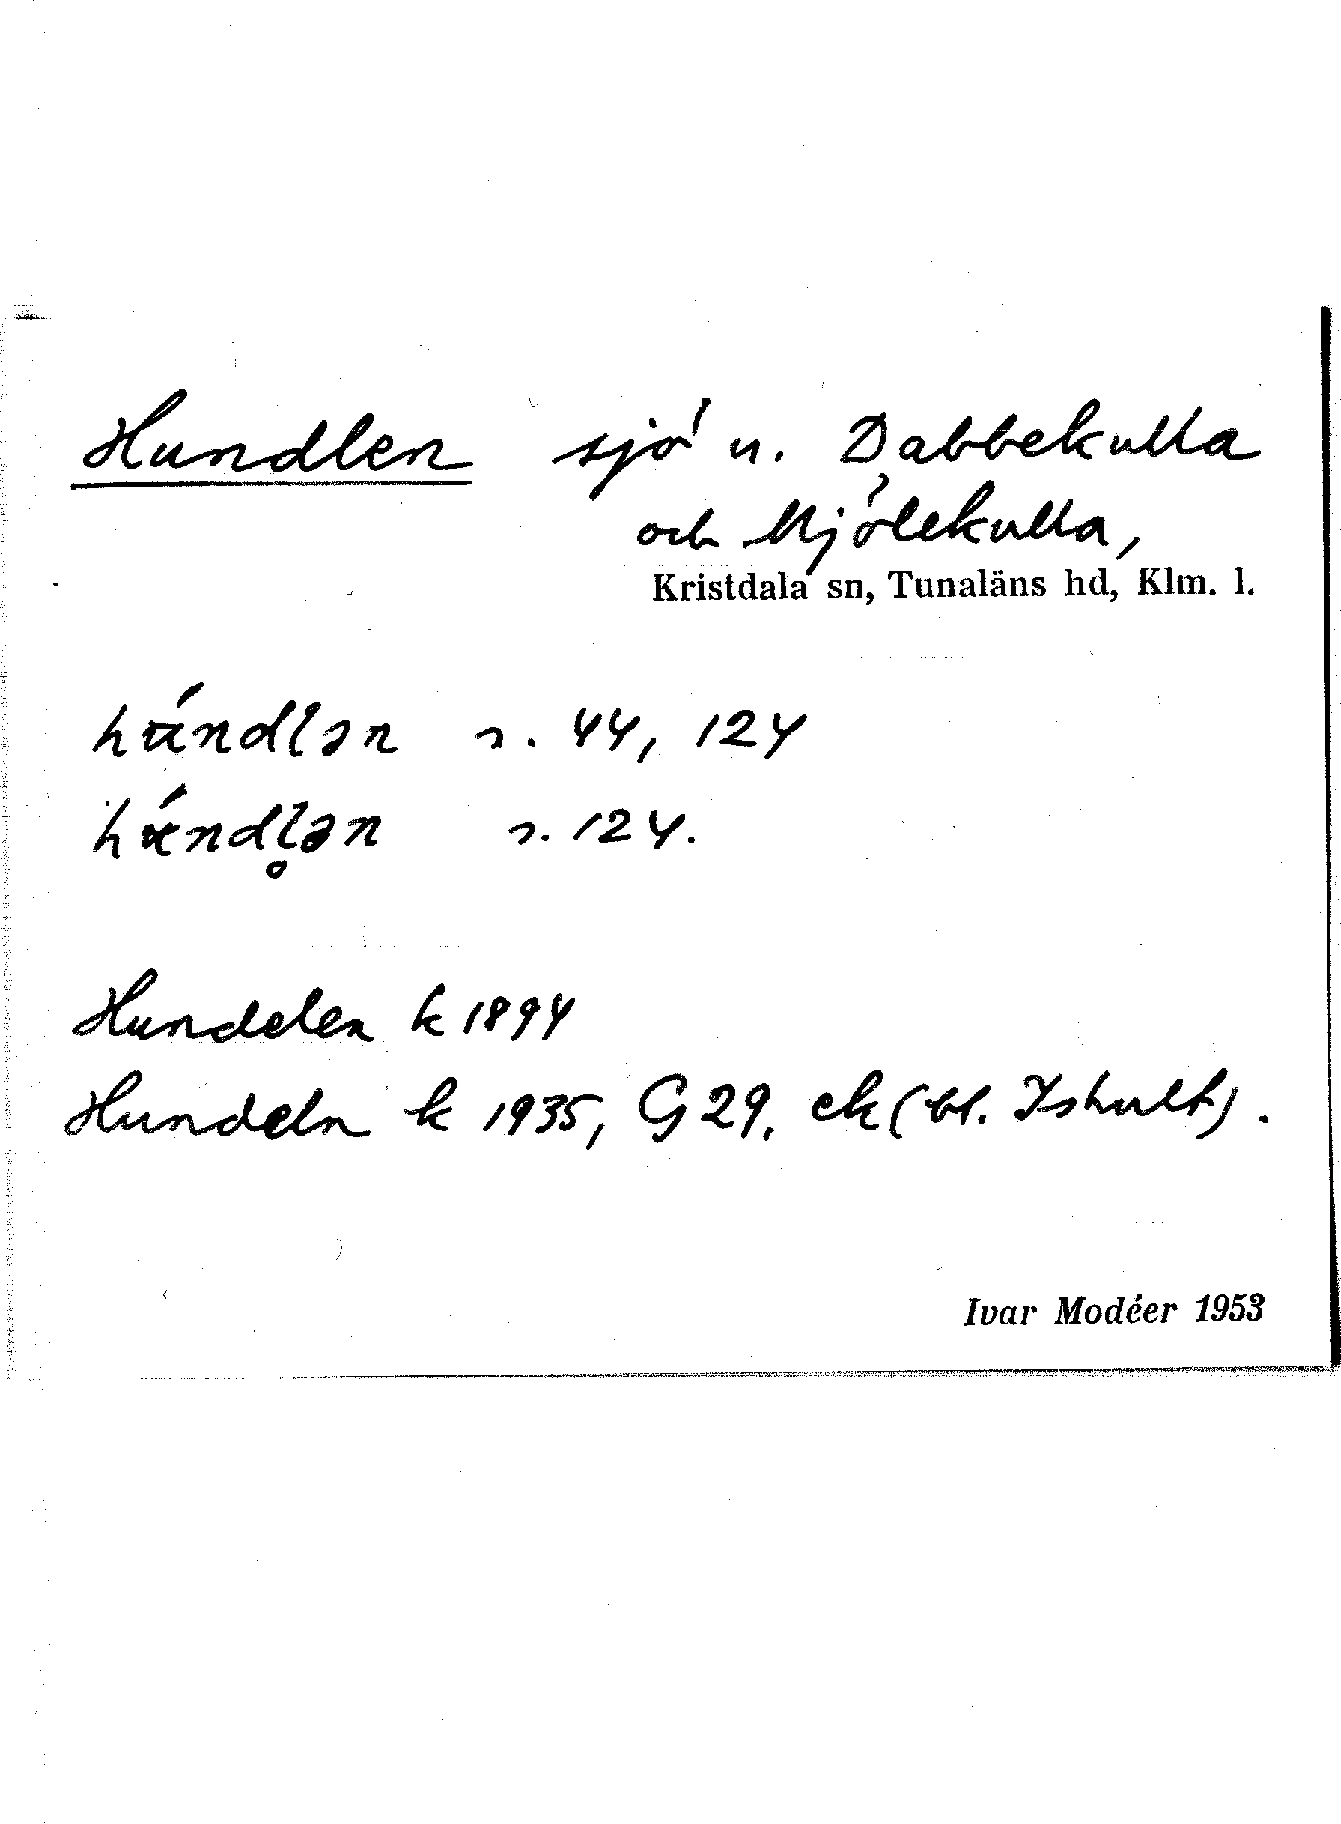 Hundlen sjö u. Dabbekulla
och Mjölekulla,
Kristdala sn, Tunaläns hd, Klm. l.
húndlən s. 44, 124
húndl̥ən s. 124.
Hundelen k 1894
Hundeln k 1935, G 29, ek (bl. Ishult).
Ivar Modéer 1953